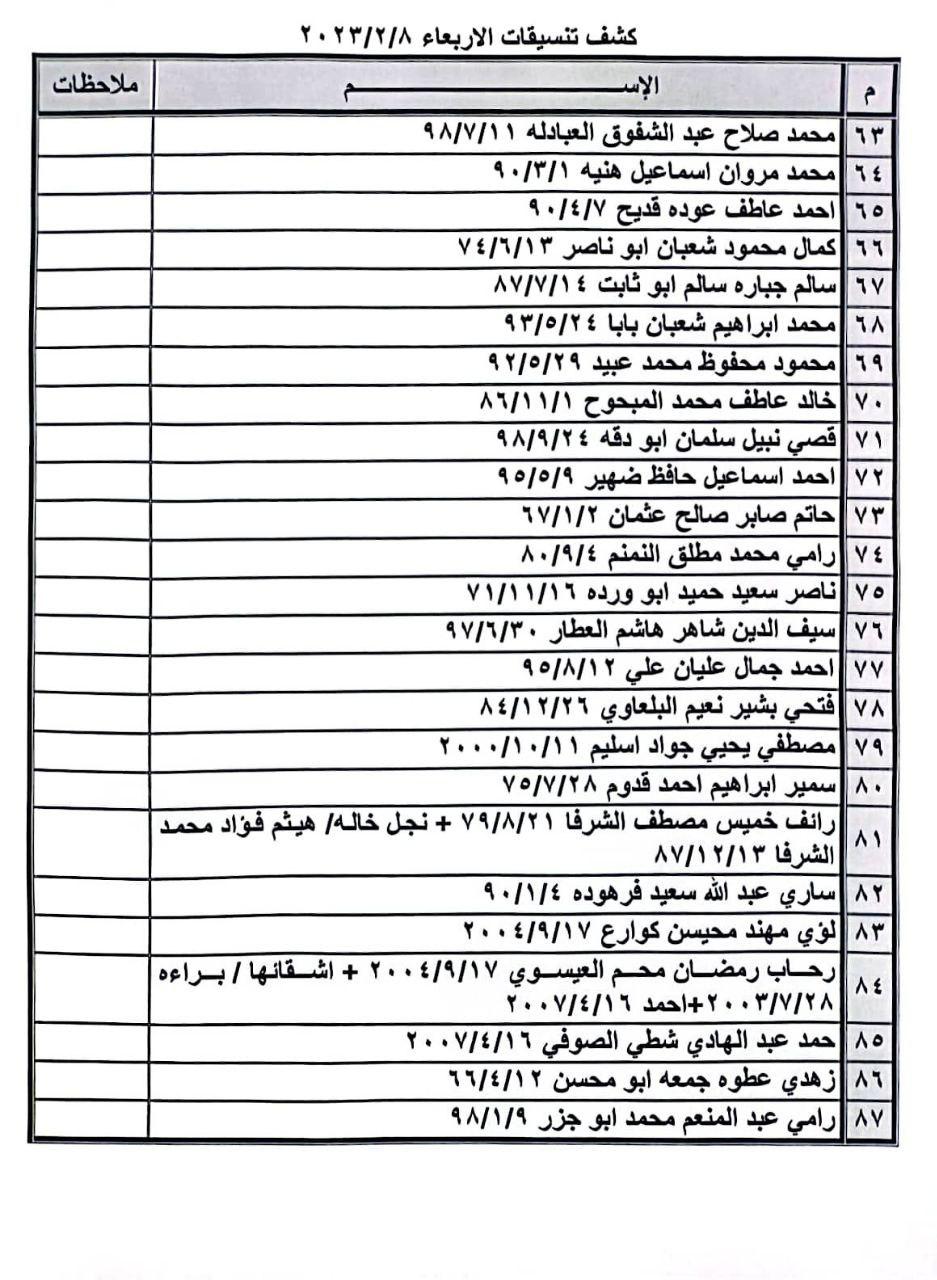 كشف تنسيقات الاربعاء ٢٠٢٣/٢/٨
م الإســـــــــم ملاحظات
٦٣ محمد صلاح عبد الشفوق العبادله ٩٨/٧/١١
٦٤ محمد مروان اسماعيل هنيه ٩٠/٣/١
٦٥ احمد عاطف عوده قديح ٩٠/٤/٧
٦٦ كمال محمود شعبان ابو ناصر ٧٤/٦/١٣
٦٧ سالم جباره سالم ابو ثابت ٨٧/٧/١٤
٦٨ محمد ابراهيم شعبان بابا ٩٣/٥/٢٤
٦٩ محمود محفوظ محمد عبيد ٩٢/٥/٢٩
٧٠ خالد عاطف محمد المبحوح ٨٦/١١/١
٧١ قصي نبيل سلمان ابو دقه ٩٨/٩/٢٤
٧٢ احمد اسماعيل حافظ ضهير ٩٥/٥/٩
٧٣ حاتم صابر صالح عثمان ٦٧/١/٢
٧٤ رامي محمد مطلق النمنم ٨٠/٩/٤
٧٥ ناصر سعيد حميد ابو ورده ٧١/١١/١٦
٧٦ سيف الدين شاهر هاشم العطار ٩٧/٦/٣٠
٧٧ احمد جمال عليان علي ٩٥/٨/١٢
٧٨ فتحي بشير نعيم البلعاوي ٨٤/١٢/٢٦
٧٩ مصطفي يحيي جواد اسليم ٢٠٠٠/١٠/١١
٨٠ سمير ابراهيم احمد قدوم ٧٥/٧/٢٨
٨١ رائف خميس مصطف الشرفا ٧٩/٨/٢١ + نجل خاله/ هيثم فؤاد محمد
الشرفا ٨٧/١٢/١٣
٨٢ ساري عبد الله سعيد فرهوده ٩٠/١/٤
٨٣ لؤي مهند محيسن كوارع ٢٠٠٤/٩/١٧
٨٤ رحاب رمضان محم العيسوي ٢٠٠٤/٩/١٧ + اشقائها / براءه
٢٠٠٣/٧/٢٨+احمد ٢٠٠٧/٤/١٦
٨٥ حمد عبد الهادي شطي الصوفي ٢٠٠٧/٤/١٦
٨٦ زهدي عطوه جمعه ابو محسن ٦٦/٤/١٢
٨٧ رامي عبد المنعم محمد ابو جزر ٩٨/١/٩